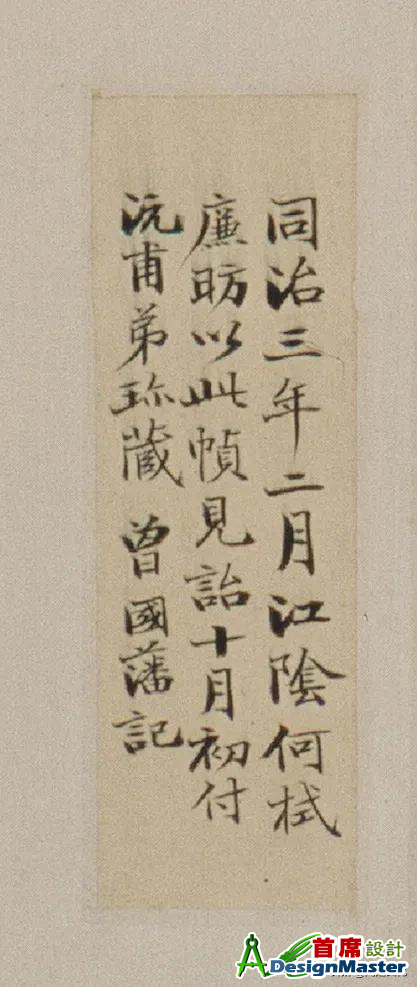 同治三年二月江陰何栻
廉昉以此幀見詒十月初付
沅甫弟珎藏 曾國藩記
首席設計
DesignMaster